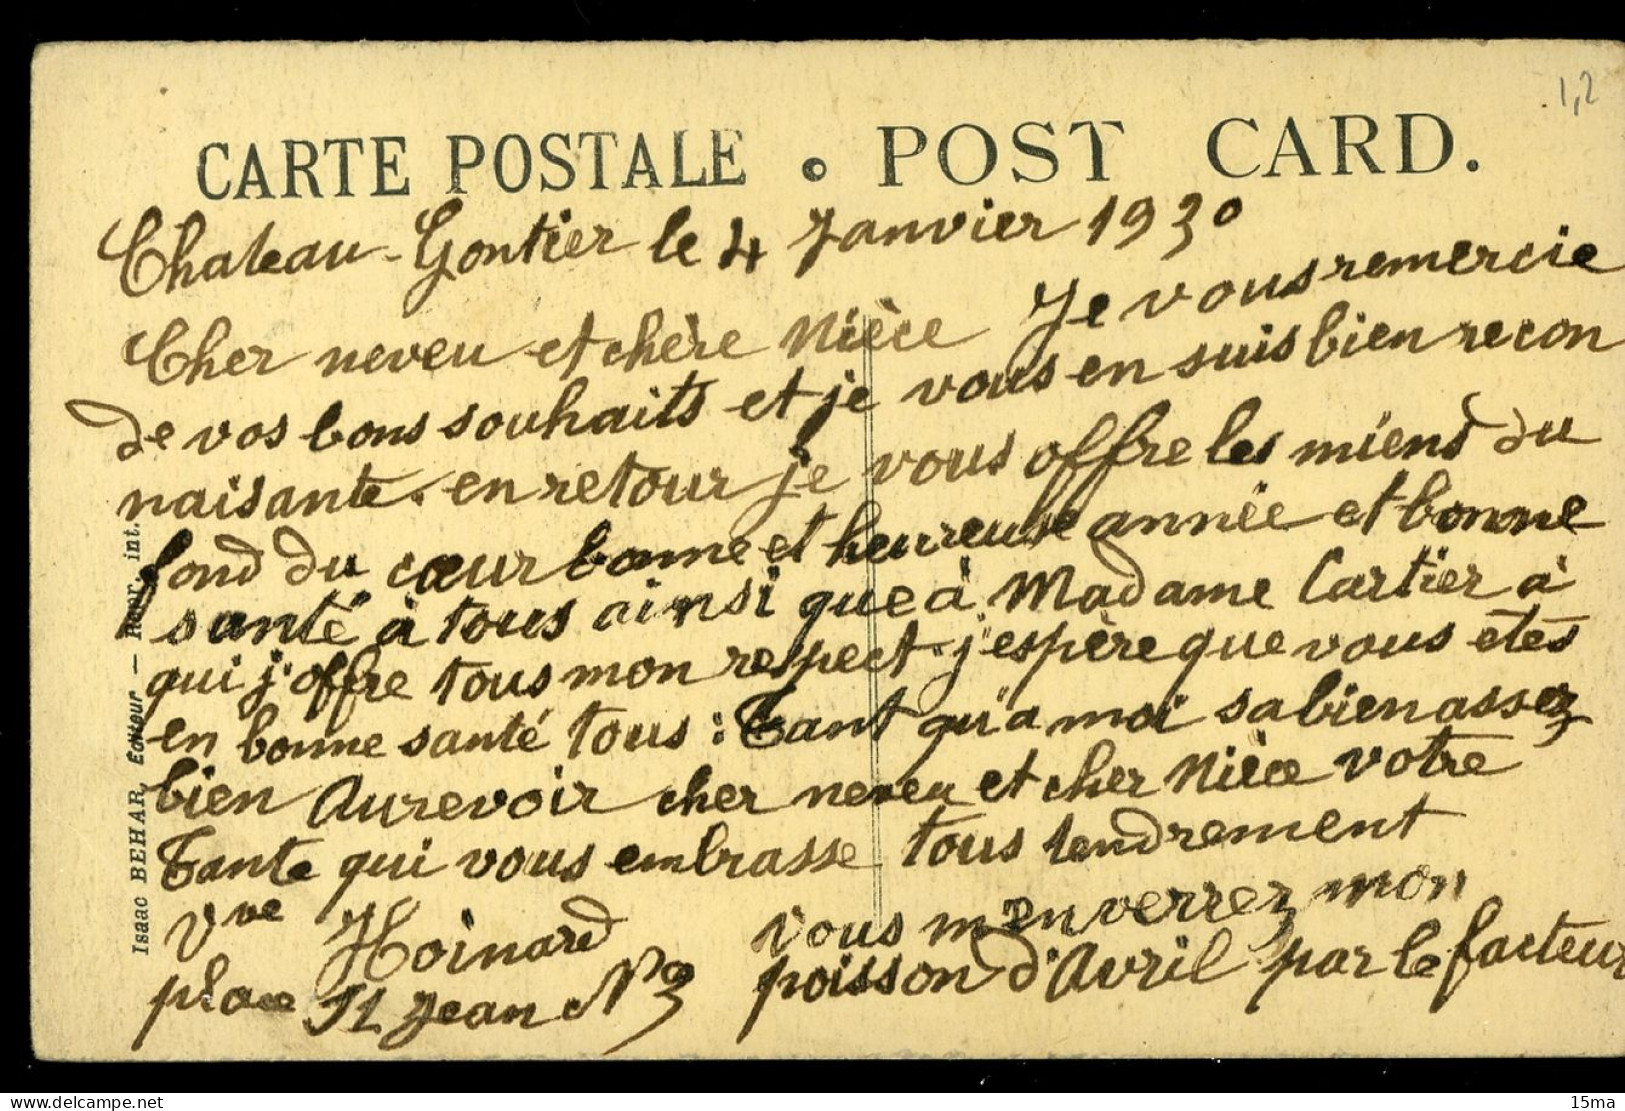 1,2
CARTE POSTALE • POST CARD.
Chateau-Gontier le 4 Janvier 1930
Cher neveu et chère Nièce Je vous remercie
de vos bons souhaits et je vous en suis bien recon
naisante. en retour je vous offre les miens du
fond du cœur bonne et heureuse année et bonne
santé à tous ainsi que à Madame Cartier à
qui j'offre tous mon respect. j'espère que vous etes
en bonne santé tous : Tant qu'a moi sa bien assez
bien Aurevoir cher neveu et cher Nièce votre
Tante qui vous embrasse tous tendrement
Vve Hoinard
place St Jean No 3
vous m'enverrez mon
poisson d'Avril par le facteur
Isaac BEHAR, Editeur — Repr. int.
15ma